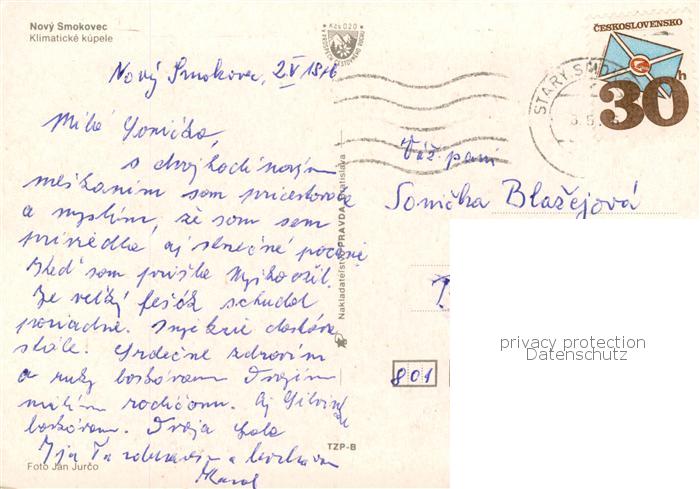 Nový Smokovec
Klimatické kúpele
Kčs 0,20
ČESKOSLOVENSKO
30h
STARÝ SMO
Nový Smokovec, 2.V 1976
Milá Sonička,
s dvojhodinovým
meškaním som pricestovala
a myslím, že som sem
priviedla aj slnečné počasie
Keď som prišla
Je veľký fešák schudol
poriadne. Injekcie dostáva
stále. Srdečne zdravím
a ruky bozkávam Tvojim
milým rodičom. Aj
bozkávam. Tvoja
I ja Ťa a
Karol
Váž. pani
Sonička Blažejová
801
Nakladateľstvo PRAVDA Bratislava
TZP-B
Foto Ján Jurčo
privacy protection
Datenschutz